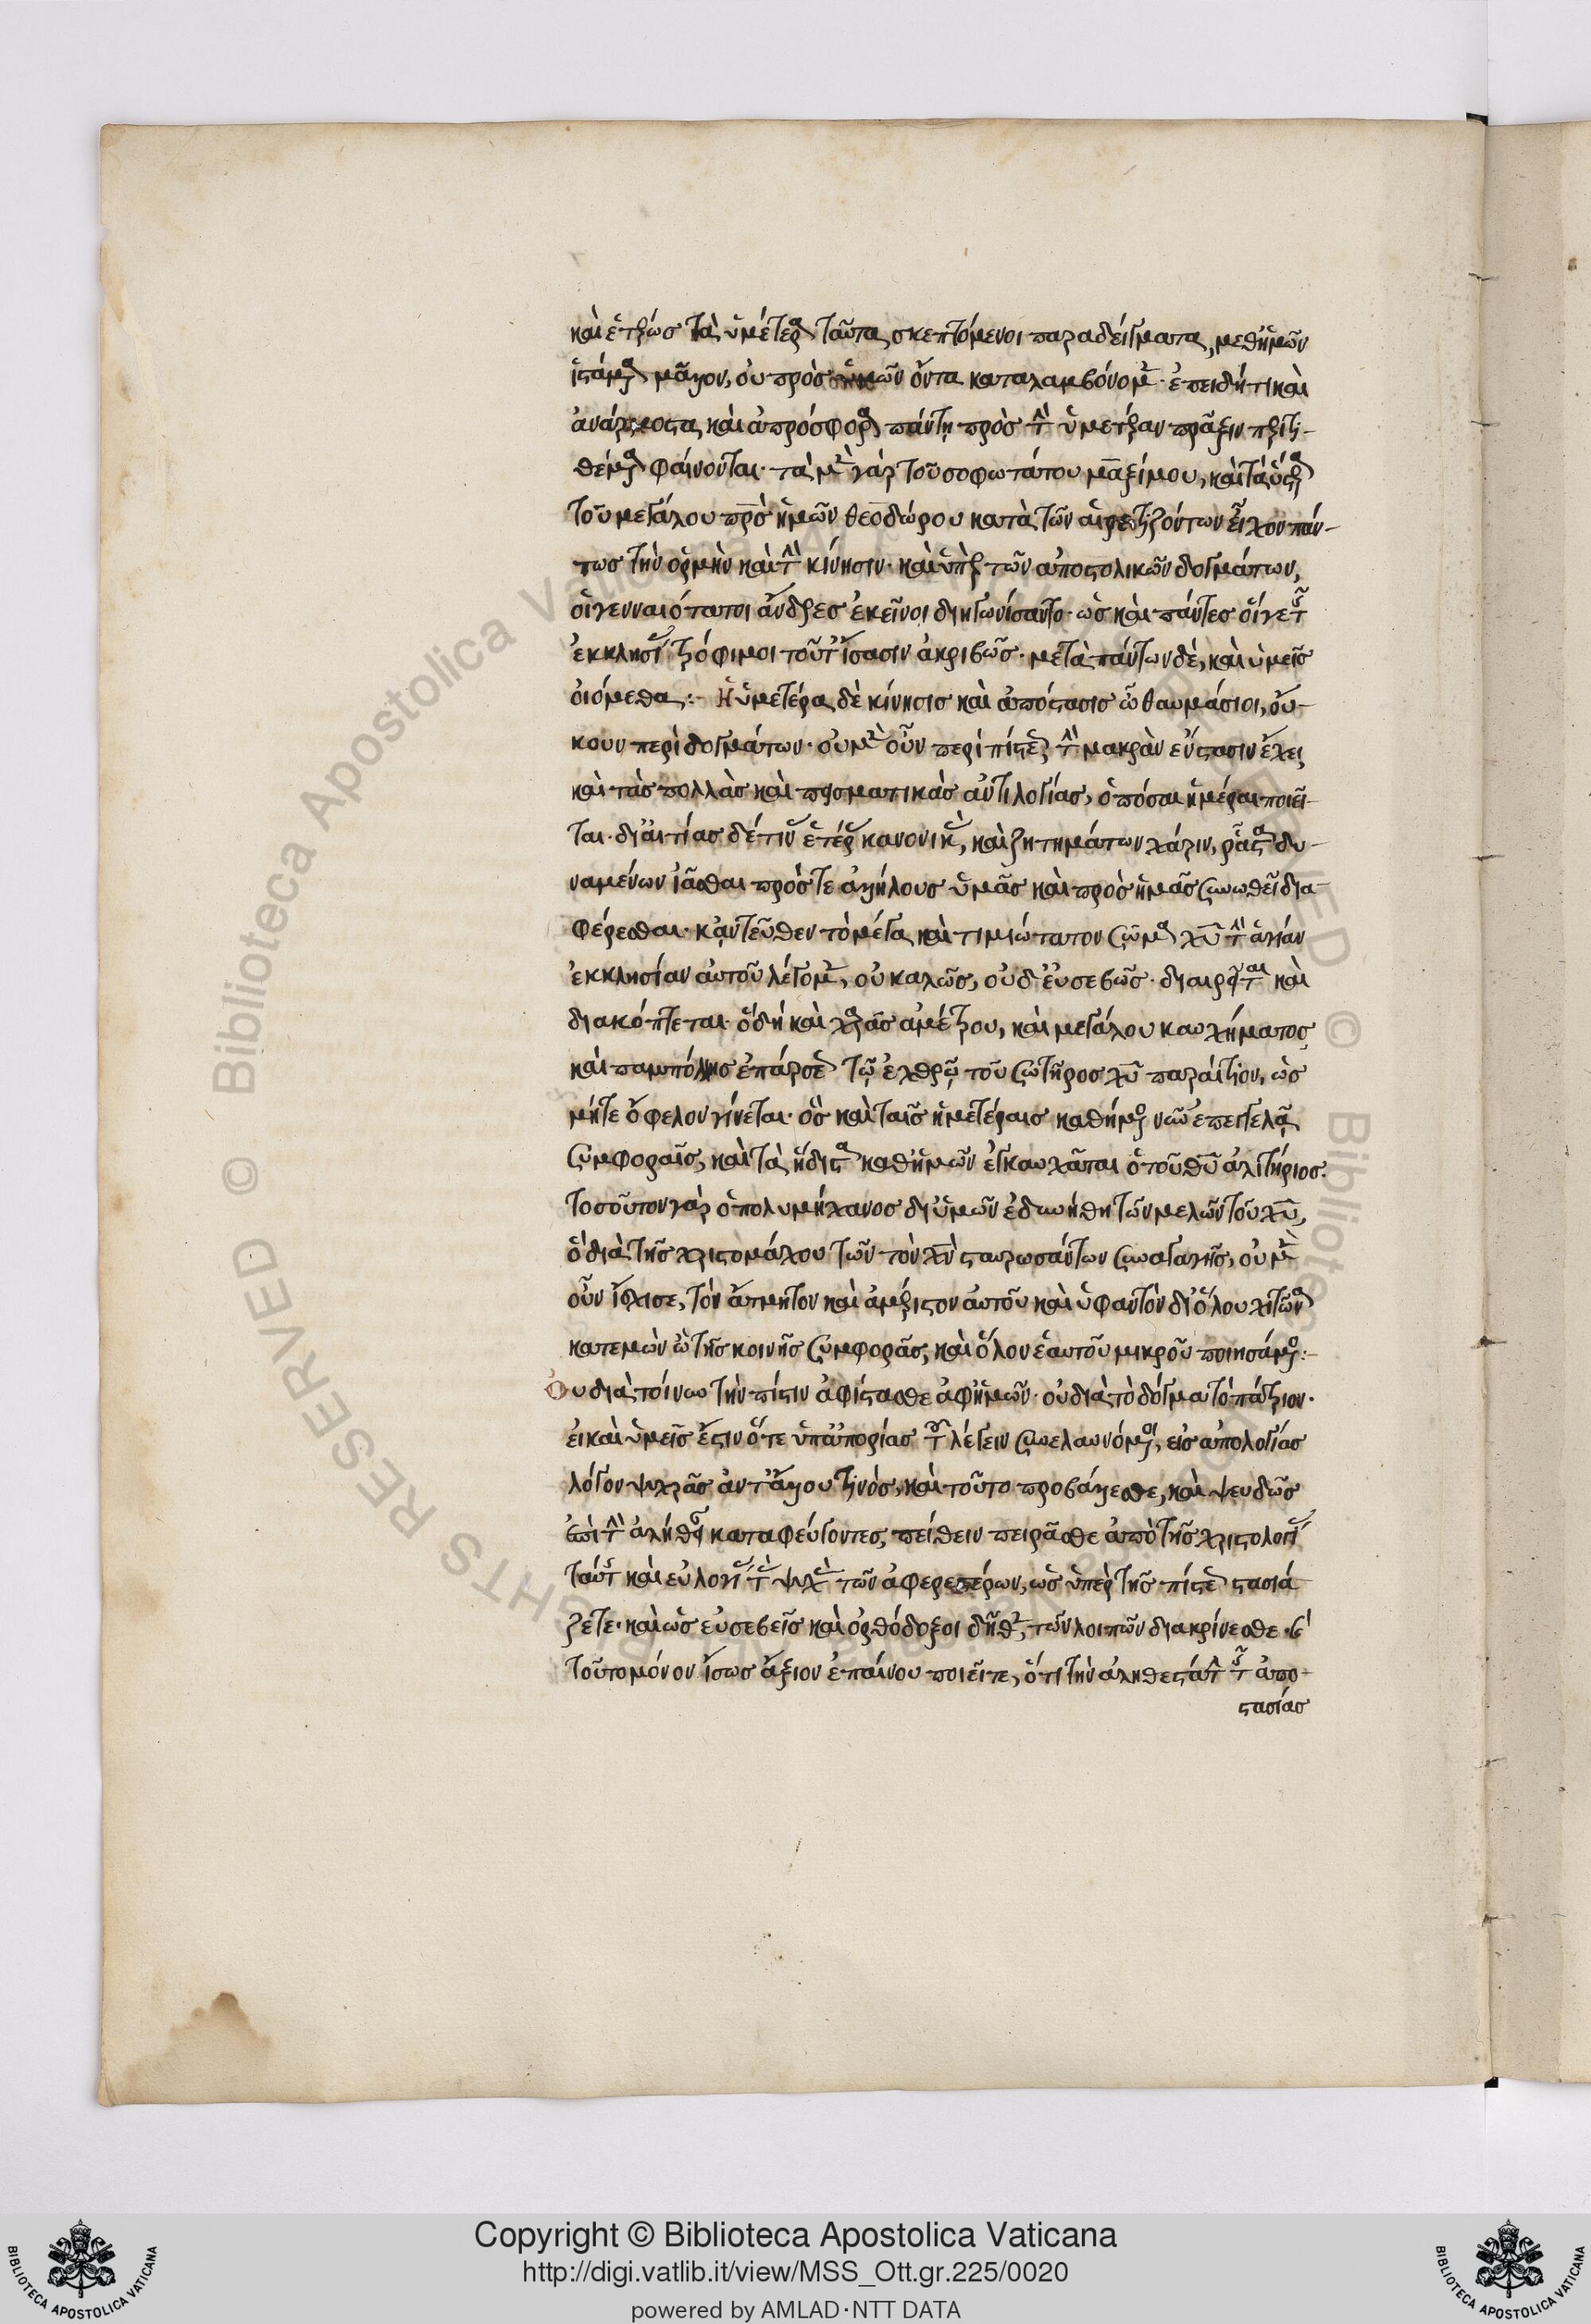 καὶ ἑτέρως τὰ ὑμέτερα ταῦτα σκεπτόμενοι παραδείγματα, μεθ' ἡμῶν
ἱστάμενα μᾶλλον, οὐ πρὸς ὑμῶν ὄντα καταλαμβάνομεν· ἐπειδήτι καὶ
ἀνάρμοστα καὶ ἀπρόσφορα πάντη πρὸς τὴν ὑμετέραν πρᾶξιν περιτι-
θέμενα φαίνονται· τὰ μὲν γὰρ τοῦ σοφωτάτου μαξίμου, καὶ τὰ ὕστερα
τοῦ μεγάλου πρὸ ἡμῶν θεοδώρου κατὰ τῶν αἱρετιζόντων εἶχον πάν-
τως τὴν ὁρμὴν καὶ τὴν κίνησιν· καὶ ὑπὲρ τῶν ἀποστολικῶν δογμάτων,
οἱ γενναιότατοι ἄνδρες ἐκεῖνοι διηγωνίσαντο· ὡς καὶ πάντες οἵγε τῆς
ἐκκλησίας τρόφιμοι τοῦτ' ἴσασιν ἀκριβῶς· μετὰ πάντων δὲ, καὶ ὑμεῖς
οἰόμεθα:- Ἡ ὑμετέρα δὲ κίνησις καὶ ἀπόστασις ὦ θαυμάσιοι, οὔ-
κουν περὶ δογμάτων· οὐ μὲν οὖν περὶ πίστεως τὴν μακρὰν ἔνστασιν ἔχει
καὶ τὰς πολλὰς καὶ πεισματικὰς ἀντιλογίας, ὁπόσαι ἡμέραι ποιεῖ-
ται· δι' αἰτίας δέ τινας ἑτέρας κανονικὰς, καὶ ζητημάτων χάριν, ῥᾷστα δυ-
ναμένων ἰᾶσθαι πρός τε ἀλλήλους ὑμᾶς καὶ πρὸς ἡμᾶς συνωθεῖ δια-
φέρεσθαι· κἀντεῦθεν τὸ μέγα καὶ τιμιώτατον σῶμα χυ τὴν ἁγίαν
ἐκκλησίαν αὐτοῦ λέγομεν, οὐ καλῶς, οὐδ' εὐσεβῶς· διαιρεῖται καὶ
διακόπτεται· ὃ δὴ καὶ χαρᾶς ἀμέτρου, καὶ μεγάλου καυχήματος
καὶ παμπόλλης ἐπάρσεως τῷ ἐχθρῷ τοῦ σωτῆρος χυ παραίτιον, ὡς
μήτε ὄφελον γίνεται· ὃς καὶ ταῖς ἡμετέραις καθήμενος νῦν ἐπεγγελᾷ
συμφοραῖς, καὶ τὰ ἥδιστα καθ' ἡμῶν ἐγκαυχᾶται ὁ τοῦ θυ ἀλιτήριος.
τοσοῦτον γὰρ ὁ πολυμήχανος δι' ὑμῶν ἐδυνήθη τῶν μελῶν τοῦ χυ,
ὃ διὰ τῆς χριστομάχου τῶν τὸν χν σταυρωσάντων συναγωγῆς, οὐ μὲν
οὖν ἴσχυσε, τὸν ἄτμητον καὶ ἀμέριστον αὐτοῦ καὶ ὑφαντὸν δι' ὅλου χιτῶνα
κατεμὼν ὢ τῆς κοινῆς συμφορᾶς, καὶ ὅλον ἑαυτοῦ μικροῦ ποιησάμενος:-
Οὐ διὰ τοίνυν τὴν πίστιν ἀφίστασθε ἀφ' ἡμῶν· οὐ διὰ τὸ δόγμα τὸ πάτριον·
εἰ καὶ ὑμεῖς ἔστιν ὅτε ὑπ' ἀπορίας τοῦ λέγειν συνελαυνόμενοι, εἰς ἀπολογίας
λόγον ψυχρᾶς ἀντ' ἄλλου τινὸς, καὶ τοῦτο προβάλλεσθε, καὶ ψευδῶς
ἐπὶ τὴν ἀλήθειαν καταφεύγοντες, πείθειν πειρᾶσθε ἀπὸ τῆς χριστολογίας
ταύτης καὶ εὐλογίας τὰς ψυχὰς τῶν ἀφελεστέρων, ὡς ὑπὲρ τῆς πίστεως στασιά
ζετε· καὶ ὡς εὐσεβεῖς καὶ ὀρθόδοξοι δῆθεν, τῶν λοιπῶν διακρίνεσθε· καὶ
τοῦτο μόνον ἴσως ἄξιον ἐπαίνου ποιεῖτε, ὅτι τὴν ἀληθεστάτην τῆς ἀπο-
στασίας
Copyright © Biblioteca Apostolica Vaticana
http://digi.vatlib.it/view/MSS_Ott.gr.225/0020
powered by AMLAD·NTT DATA